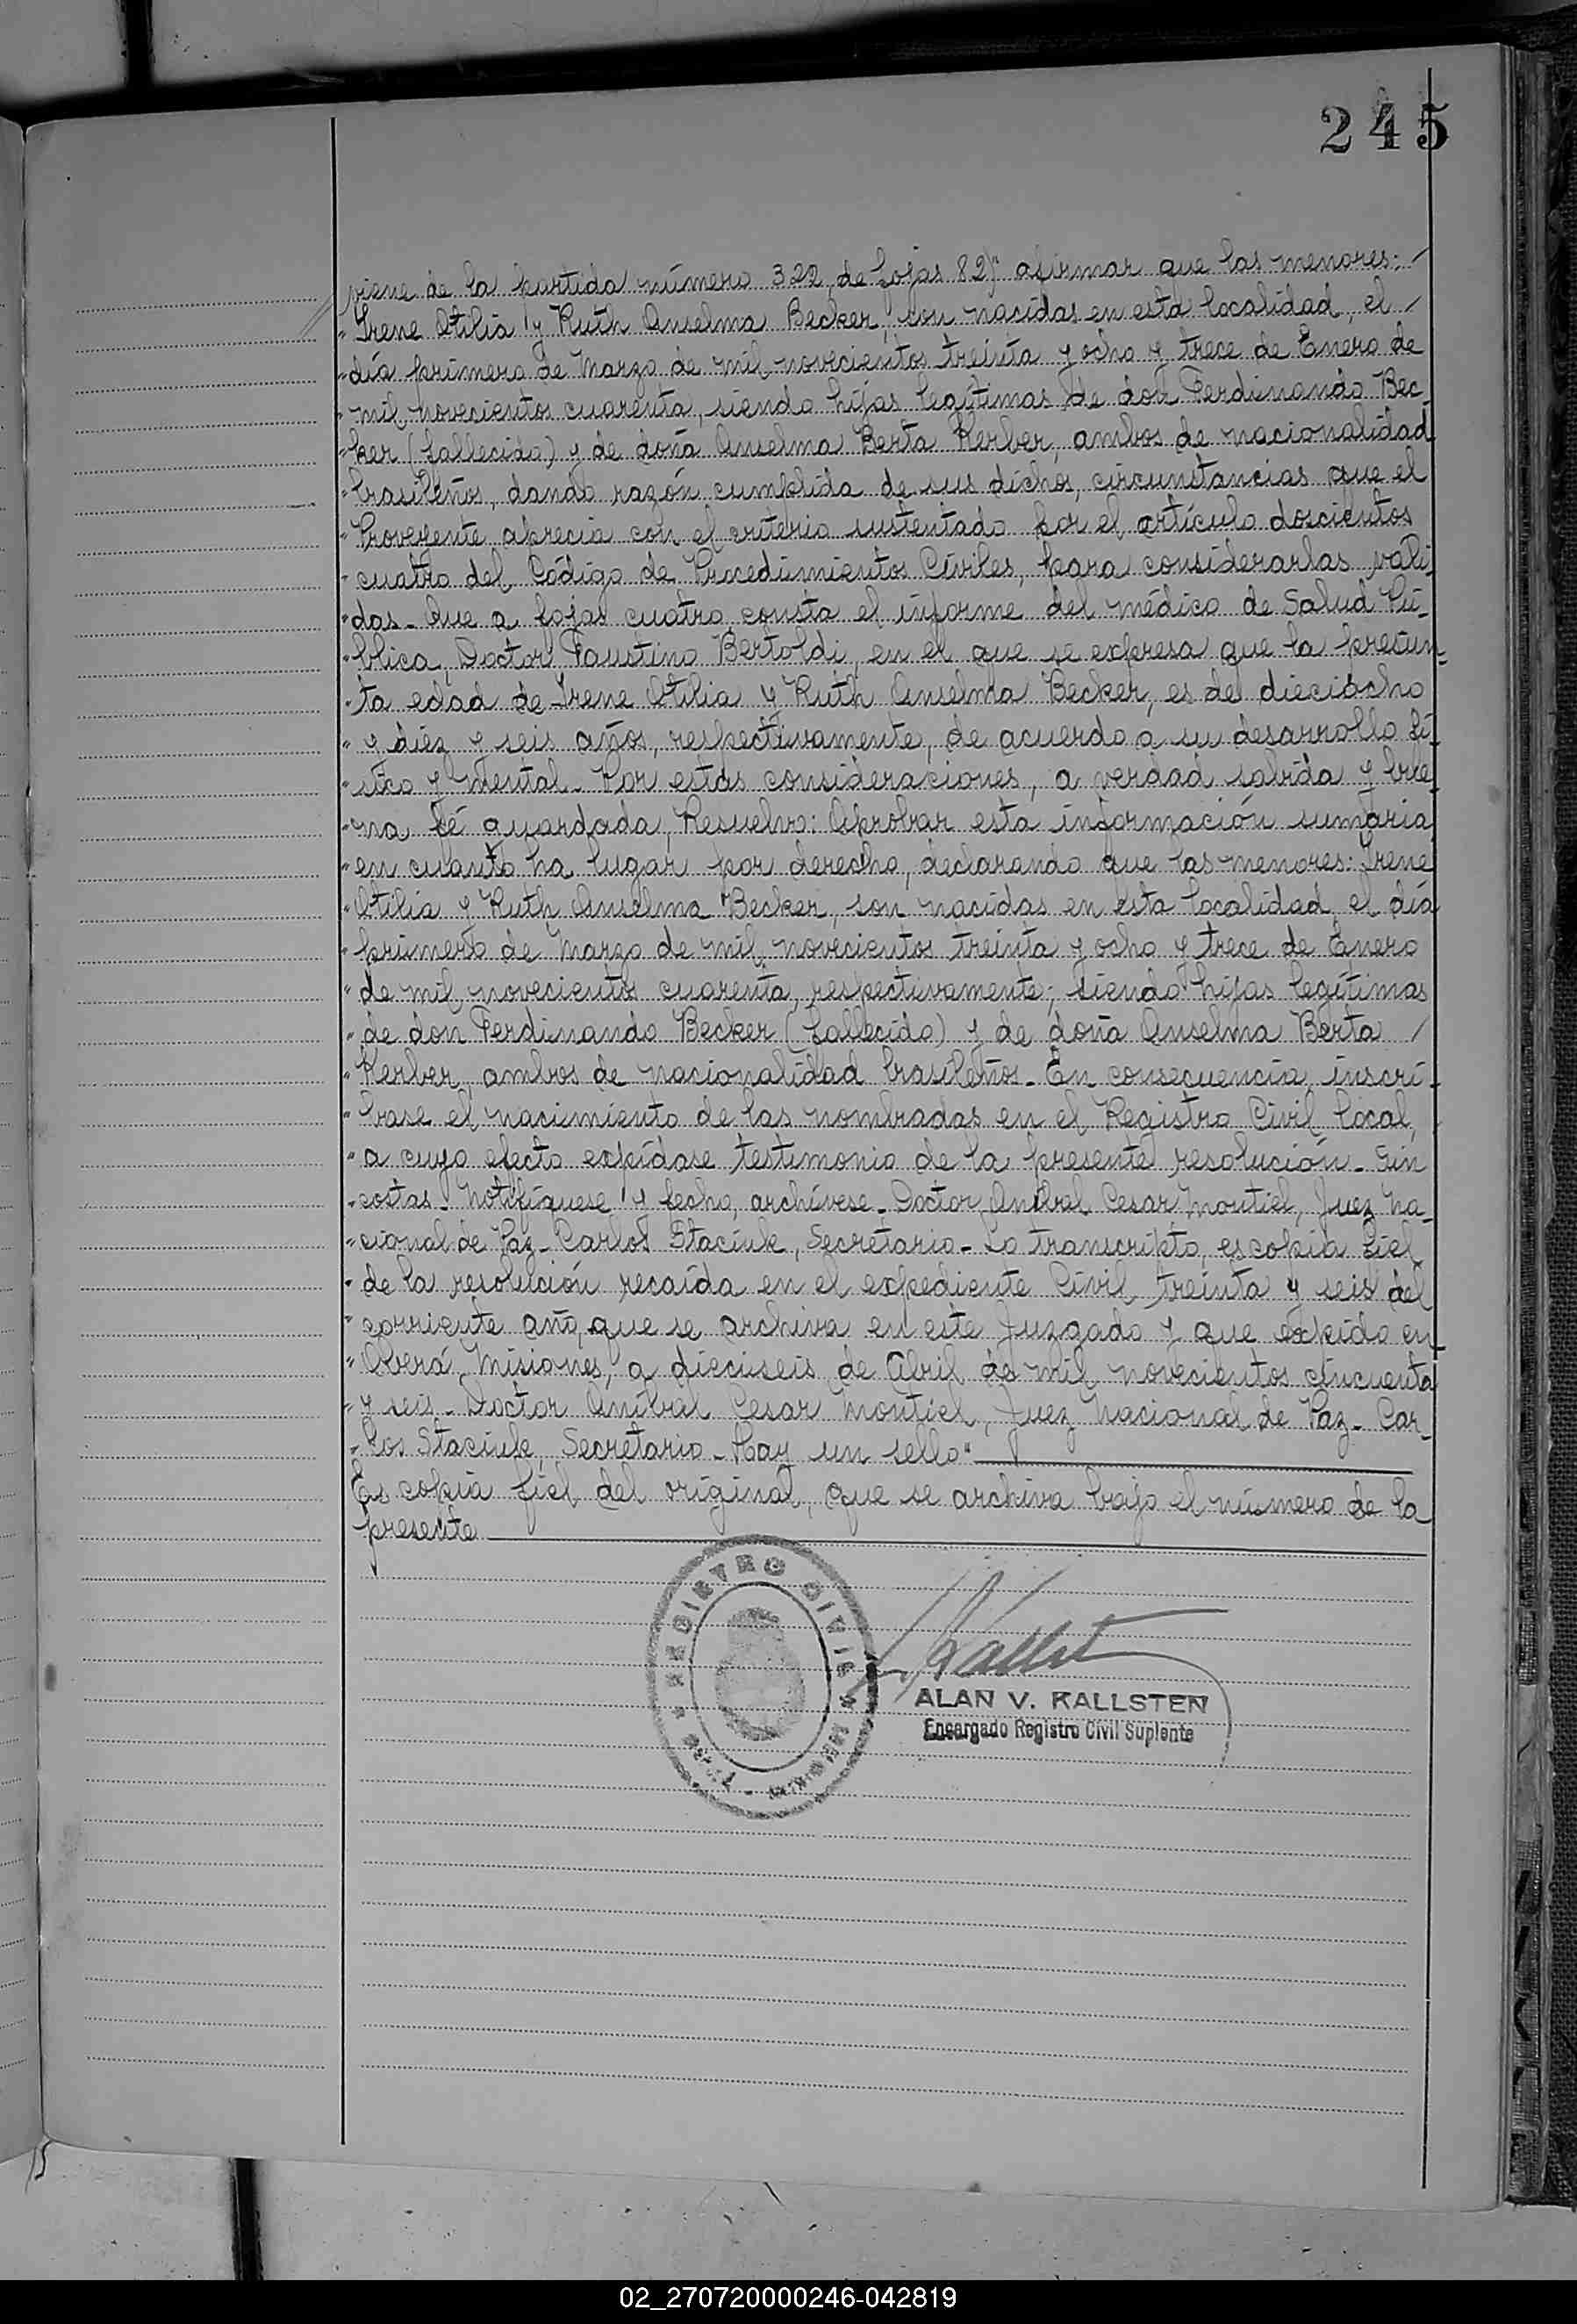 245
viene de la partida número 322 de fojas 82)" afirmar que las menores: /
"Irene Otilia y Ruth Anselma Becker, son nacidas en esta localidad, el /
"día primero de Marzo de mil novecientos treinta y ocho y trece de Enero de
"mil novecientos cuarenta, siendo hijas legítimas de don Ferdinando Bec-
"ker (fallecido) y de doña Anselma Berta Kerber, ambos de nacionalidad
"brasileños, dando razón cumplida de sus dichos, circunstancias que el
"Proveyente aprecia con el criterio sustentado por el artículo doscientos
"cuatro del Código de Procedimientos Civiles, para considerarlas váli-
"das_ Que a fojas cuatro consta el informe del médico de Salud Pú-
"blica, Doctor Faustino Bertoldi, en el que se expresa que la presun-
"ta edad de Irene Otilia y Ruth Anselma Becker, es de dieciocho
"y diez y seis años, respectivamente, de acuerdo a su desarrollo fí-
"sico y mental_ Por estas consideraciones, a verdad sabida y bue-
"na fé guardada, Resuelvo: Aprobar esta información sumaria
"en cuanto ha lugar por derecho, declarando que las menores: Irene
"Otilia y Ruth Anselma Becker, son nacidas en esta localidad, el día
"primero de Marzo de mil novecientos treinta y ocho y trece de Enero
"de mil novecientos cuarenta, respectivamente; siendo hijas legítimas
"de don Ferdinando Becker (fallecido) y de doña Anselma Berta /
"Kerber, ambos de nacionalidad brasileños_ En consecuencia, inscrí-
"base el nacimiento de las nombradas en el Registro Civil local,
"a cuyo efecto expídase testimonio de la presente resolución_ Sin
"costas_ Notifíquese y fecho, archívese_ Doctor Aníbal Cesar Montiel, Juez Na-
"cional de Paz_ Carlos Staciuk, Secretario_ Lo transcripto, es copia fiel
"de la resolución recaída en el expediente Civil treinta y seis del
"corriente año, que se archiva en este Juzgado y que expido en
"Oberá, Misiones, a dieciseis de Abril de mil novecientos cincuenta
"y seis_ Doctor Aníbal Cesar Montiel, Juez Nacional de Paz_ Car-
"los Staciuk, Secretario_ Hay un sello"
Es copia fiel del original, que se archiva bajo el número de la
presente
REGISTRO CIVIL
ALAN V. KALLSTEN
Encargado Registro Civil Suplente
02_270720000246-042819